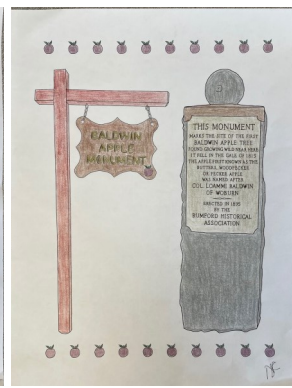 BALDWIN
APPLE
MONUMENT
THIS MONUMENT
MARKS THE SITE OF THE FIRST
BALDWIN APPLE TREE
FOUND GROWING WILD NEAR HERE
IT FELL IN THE GALE OF 1815
THE APPLE FIRST KNOWN AS THE
BUTTERS, WOODPECKER
OR PECKER APPLE
WAS NAMED AFTER
COL. LOAMMI BALDWIN
OF WOBURN
ERECTED IN 1895
BY THE
RUMFORD HISTORICAL
ASSOCIATION